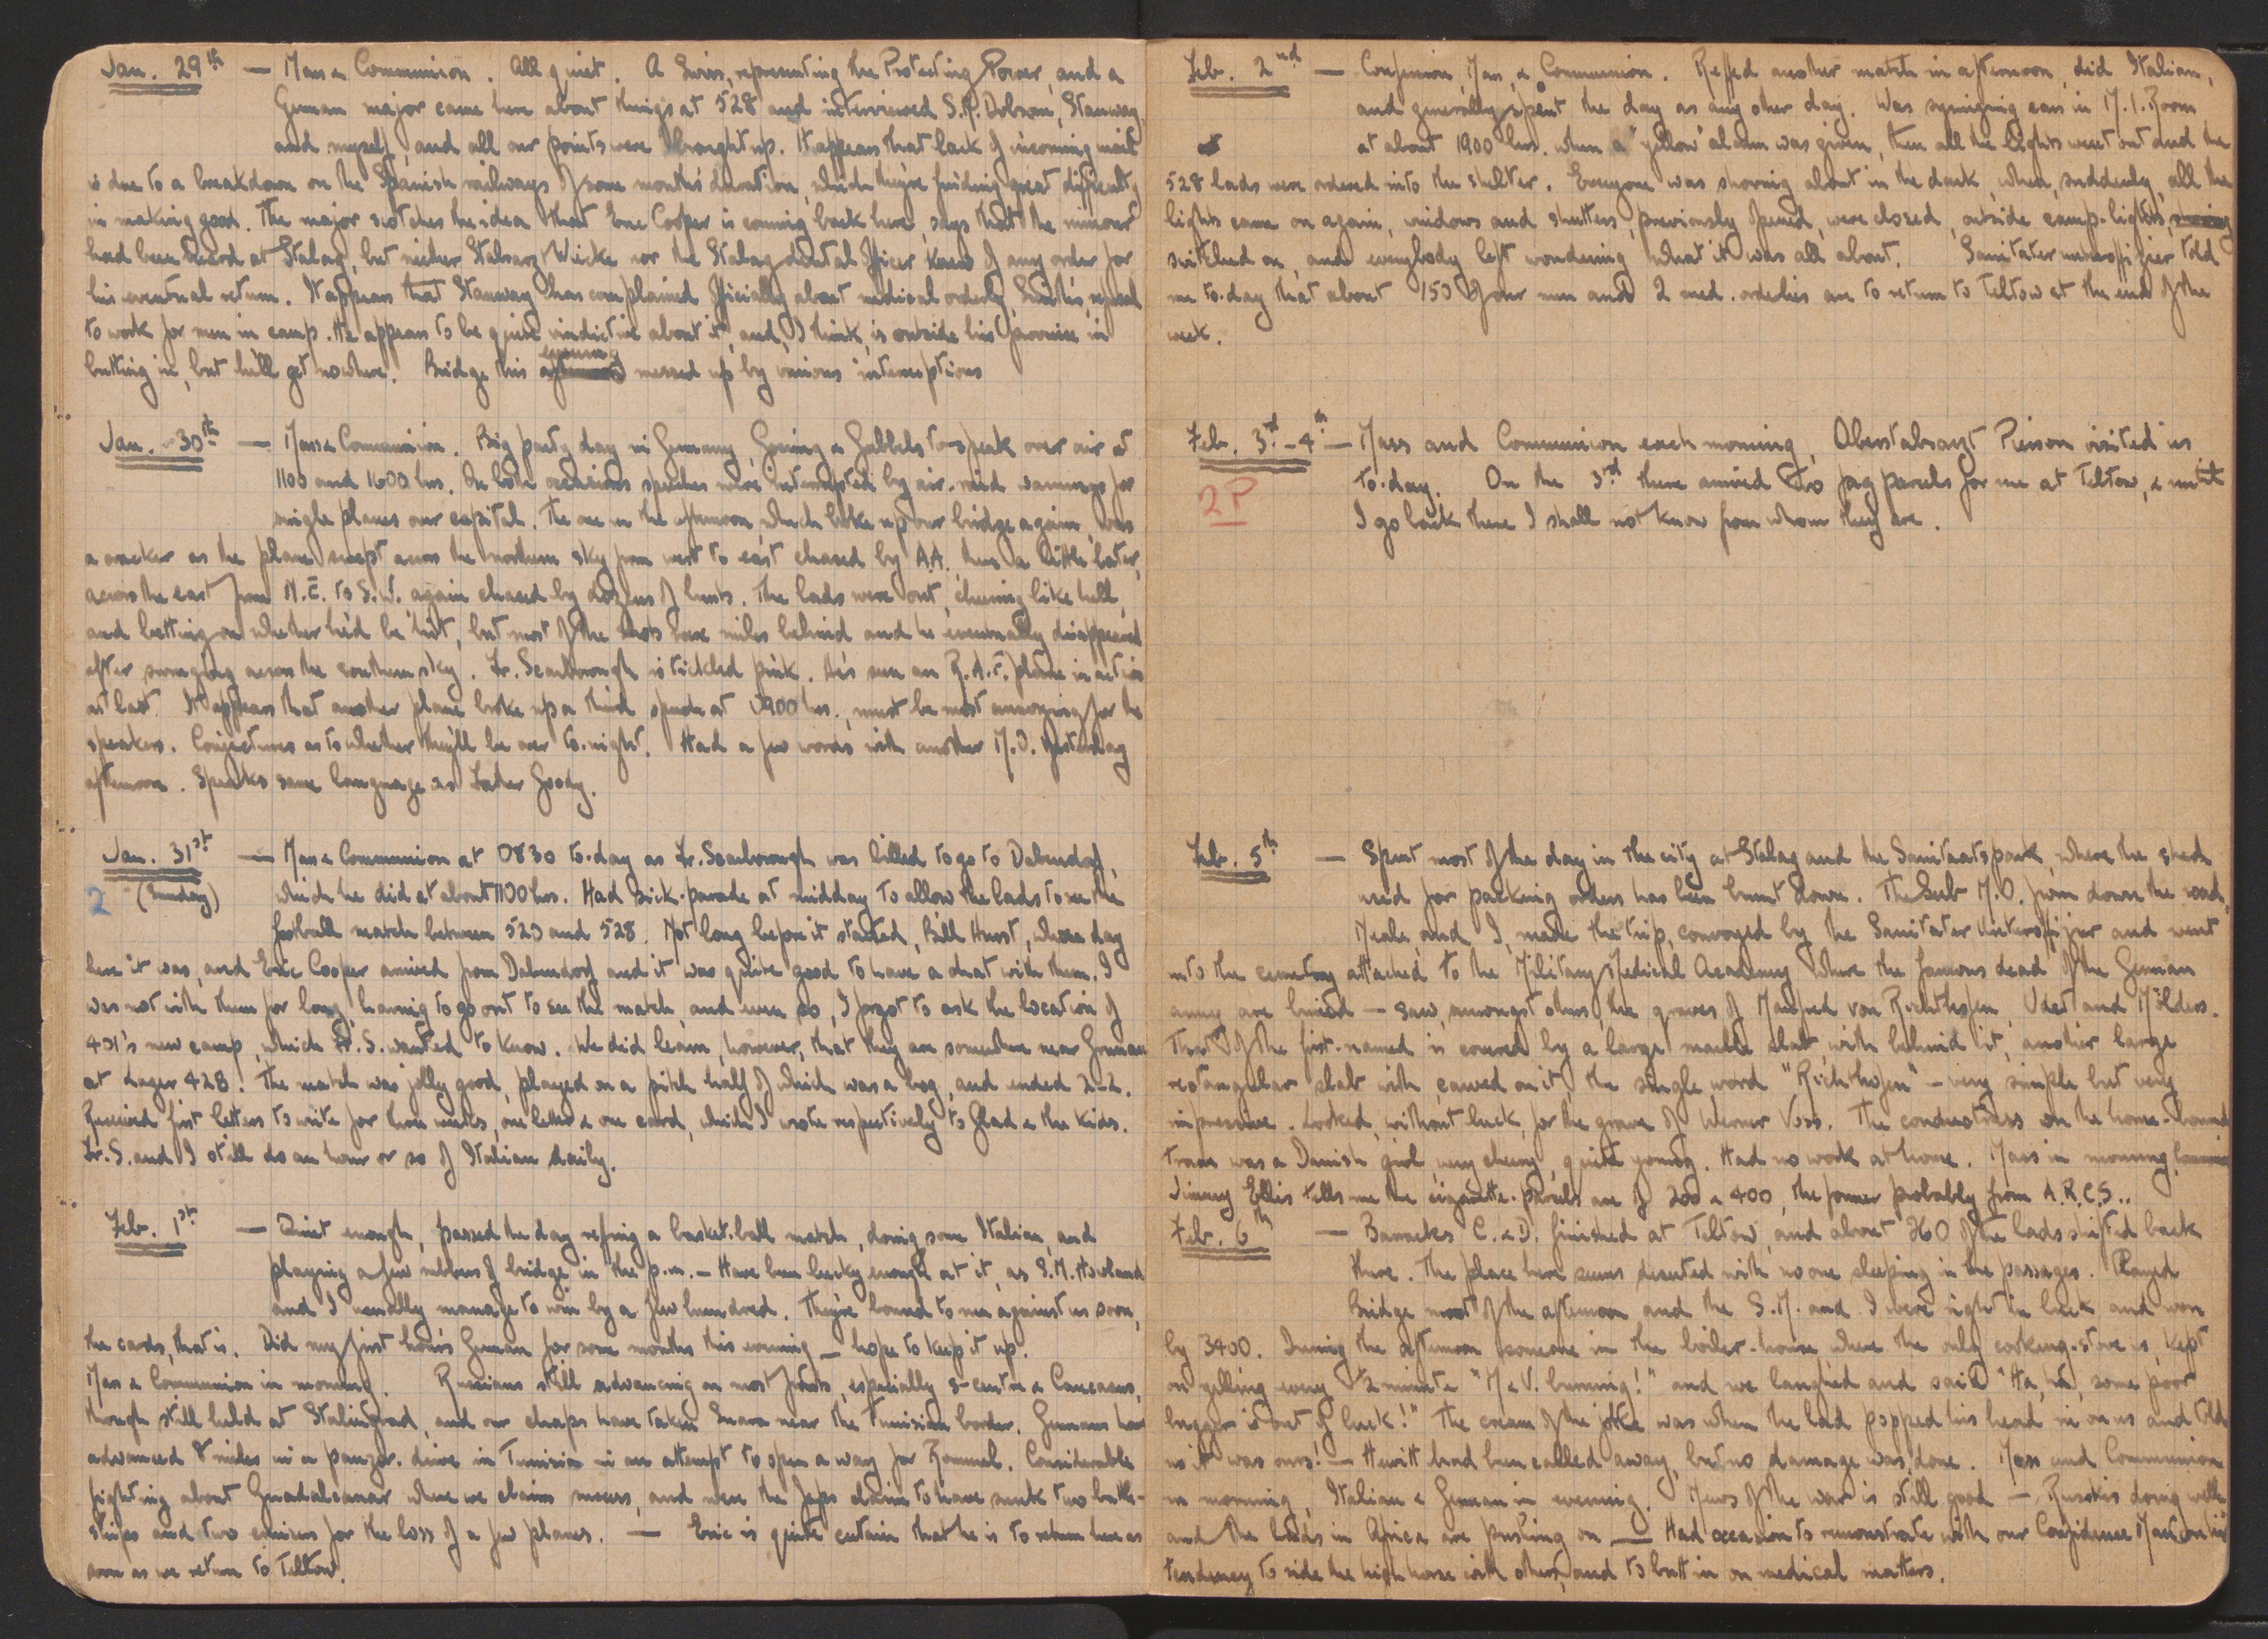 Jan. 29th — Mass & Communion. All quiet. A Swiss, representing the Protecting Power, and a
German major came here about things at 528 and interviewed S.M. Dobson, Stanway
and myself, and all our points were brought up. It appears that lack of incoming mail
is due to a breakdown on the Spanish railways of some months' duration, which they're finding great difficulty
in making good. The major scotches the idea that Eric Cooper is coming back here, says that the rumour
had been heard at Stalag, but neither Stabsarzt Wicke nor the Stalag dental officer knew of any order for
his eventual return. It appears that Stanway has complained officially about medical orderly Smith's refusal
to work for men in camp. He appears to be quite vindictive about it, and, I think, is outside his province in
butting in, but he'll get nowhere. Bridge this evening messed up by various interruptions
Jan. 30th — Mass & Communion. Big party day in Germany, Goering & Goebbels to speak over air at
1100 and 1600 hrs. On both occasions speeches were interrupted by air-raid warnings for
single planes over capital. The one in the afternoon, which broke up our bridge again, was
a cracker as the plane swept across the northern sky from west to east chased by A.A. then a little later,
across the east from N.E. to S.W. again chased by dozens of bursts. The lads were out, cheering like hell,
and betting on whether he'd be hit, but most of the shots were miles behind and he eventually disappeared
after swinging across the southern sky. Fr. Scarborough is tickled pink. He's seen an R.A.F. plane in action
at last. It appears that another plane broke up a third speech at 1900 hrs., must be most annoying for the
speakers. Conjectures as to whether they'll be over to-night. Had a few words with another M.O. yesterday
afternoon. Speaks same language as Father Goody.
Jan. 31st — Mass & Communion at 0830 to-day as Fr. Scarborough was billed to go to Dabendorf,
2 (Sunday) which he did at about 1100 hrs. Had sick-parade at midday to allow the lads to see the
football match between 520 and 528. Not long before it started, Bill Hurst, whose day
here it was, and Eric Cooper arrived from Dabendorf and it was quite good to have a chat with them. I
was not with them for long, having to go out to see the match, and even so, I forgot to ask the location of
401's new camp, which Fr. S. wanted to know. We did learn, however, that they are somewhere near Grunau
at Lager 428. The match was jolly good, played on a pitch half of which was a bog, and ended 2-2.
Received first letters to write for three weeks, one letter & one card, which I wrote respectively to Glad & the kids.
Fr. S. and I still do an hour or so of Italian daily.
Feb. 1st — Quiet enough, passed the day refing a basket-ball match, doing some Italian, and
playing a few rubbers of bridge in the p.m. — Have been lucky enough at it, as S.M. Howland
and I usually manage to win by a few hundred. They're bound to run against us soon,
the cards, that is. Did my first hour's German for some months this evening — hope to keep it up.
Mass & Communion in morning. Russians still advancing on most fronts, especially s-centre & Caucasus,
though still held at Stalingrad, and our chaps have taken Zuara near the Tunisian border. Germans have
advanced 8 miles in a panzer-drive in Tunisia in an attempt to open a way for Rommel. Considerable
fighting about Guadalcanar where we claim success, and were the Japs claim to have sunk two battle-
ships and two cruisers for the loss of a few planes. — Eric is quite certain that he is to return here as
soon as we return to Teltow.
Feb. 2nd — Confession, Mass, & Communion. Reffed another match in afternoon, did Italian,
and generally spent the day as any other day. Was syringing ears in M.I. Room
at about 1900 hrs. when a "yellow" alarm was given, then all the lights went out and the
528 lads were ordered into the shelter. Everyone was shoving about in the dark when, suddenly, all the
lights came on again, windows and shutters, previously opened, were closed, outside camp-lights
switched on, and everybody left wondering what it was all about. Sanitater unteroffizier told
me to-day that about 150 of our men and 2 med. orderlies are to return to Teltow at the end of the
week.
Feb. 3rd-4th — Mass and Communion each morning, Oberstabsarzt Pierson visited us
2P to-day. On the 3rd there arrived two fag parcels for me at Teltow, & until
I go back there I shall not know from whom they are.
Feb. 5th — Spent most of the day in the city at Stalag and the Sanitaatspark, where the shed
used for packing orders has been burnt down. The Serb M.O. from down the road,
Meale, and I, made the trip, convoyed by the Sanitater Unteroffizier and went
into the cemetery attached to the Military Medical Academy where the famous dead of the German
army are buried — saw, amongst others, the graves of Manfred von Richthofen, Udet and Mölders.
That of the first-named is covered by a large marble slab, with behind it, another large
rectangular slab with, carved on it, the single word "Richthofen" — very simple but very
impressive. Looked, without luck, for the grave of Werner Voss. The conductress on the home-bound
tram was a Danish girl, very cheery, quite young. Had no work at home. Mass in morning,
Jimmy Ellis tells me the cigarette-parcels are of 200 & 400, the former probably from A.R.C.S..
Feb. 6th — Barracks C. & D. finished at Teltow, and about 260 of the lads shifted back
there. The place here seems deserted with no one sleeping in the passages. Played
Bridge most of the afternoon and the S.M. and I were right in luck and won
by 3400. During the afternoon someone in the boiler-house where the only cooking-stove is, kept
on yelling every ½ minute "M & V. burning!" and we laughed and said "Ha, ha, some poor
beggar's out of luck!" The cream of the joke was when the lad popped his head in on us and told
us it was ours! — Hewitt had been called away, but no damage was done. Mass and Communion
in morning, Italian & German in evening. News of the war is still good — Russkis doing well
and the lads in Africa are pushing on — Had occasion to remonstrate with our Confidence Man on his
tendency to ride the high horse with others, and to butt in on medical matters.